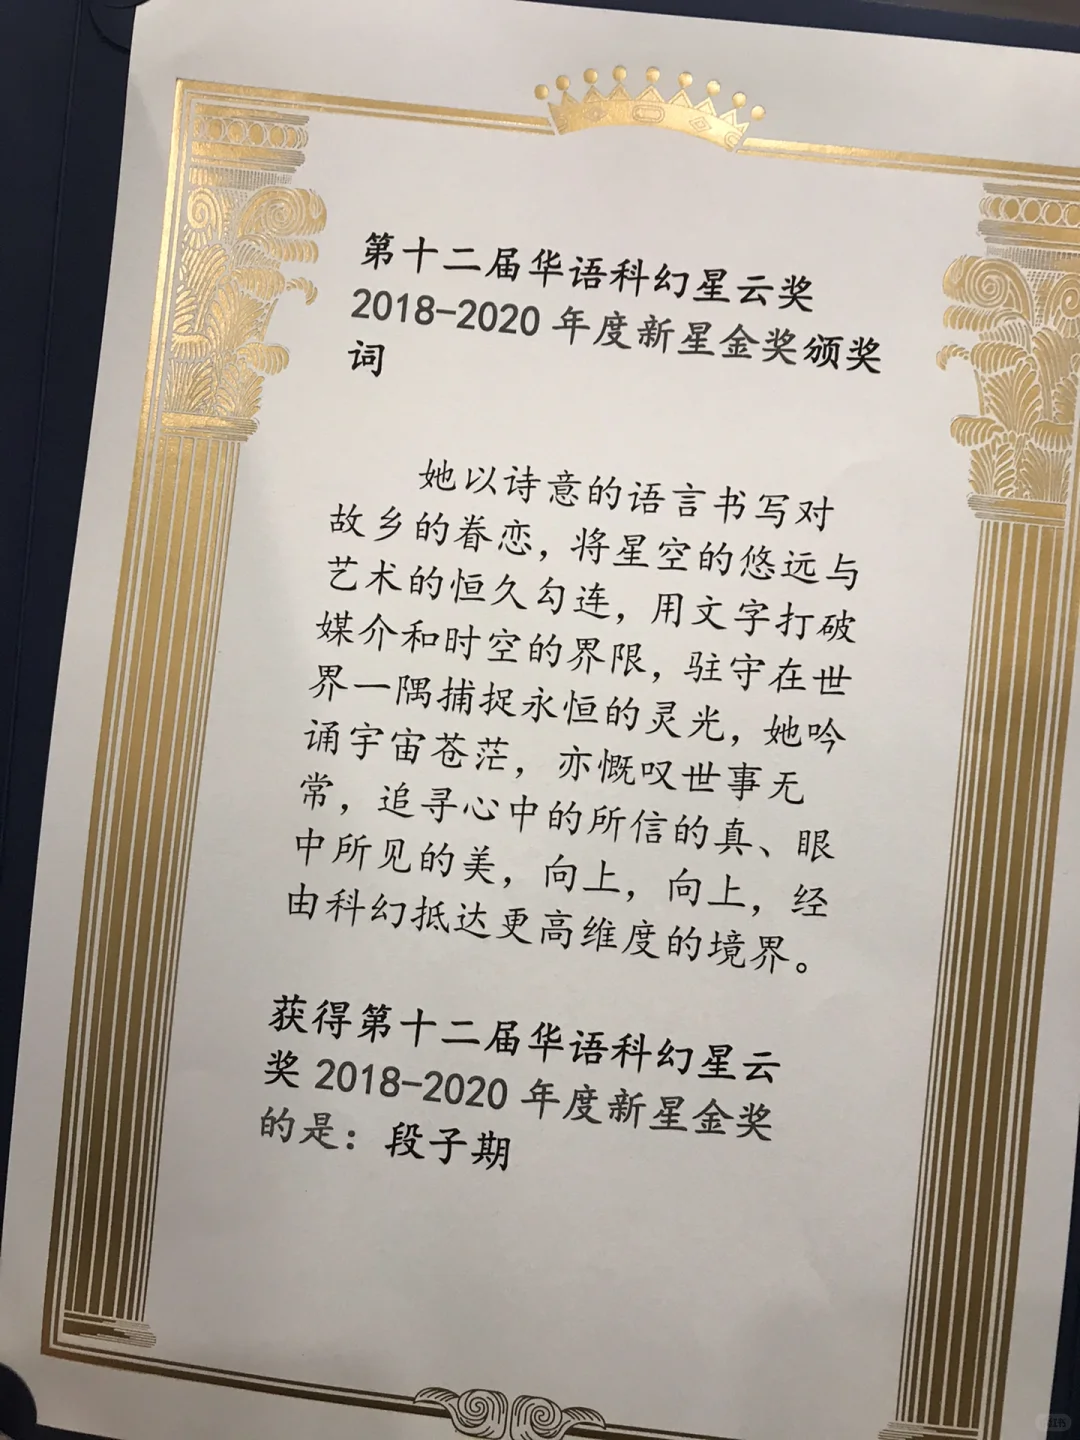 第十二届华语科幻星云奖
2018-2020 年度新星金奖颁奖
词
她以诗意的语言书写对
故乡的眷恋，将星空的悠远与
艺术的恒久勾连，用文字打破
媒介和时空的界限，驻守在世
界一隅捕捉永恒的灵光，她吟
诵宇宙苍茫，亦慨叹世事无
常，追寻心中的所信的真、眼
中所见的美，向上，向上，经
由科幻抵达更高维度的境界。
获得第十二届华语科幻星云
奖 2018-2020 年度新星金奖
的是：段子期